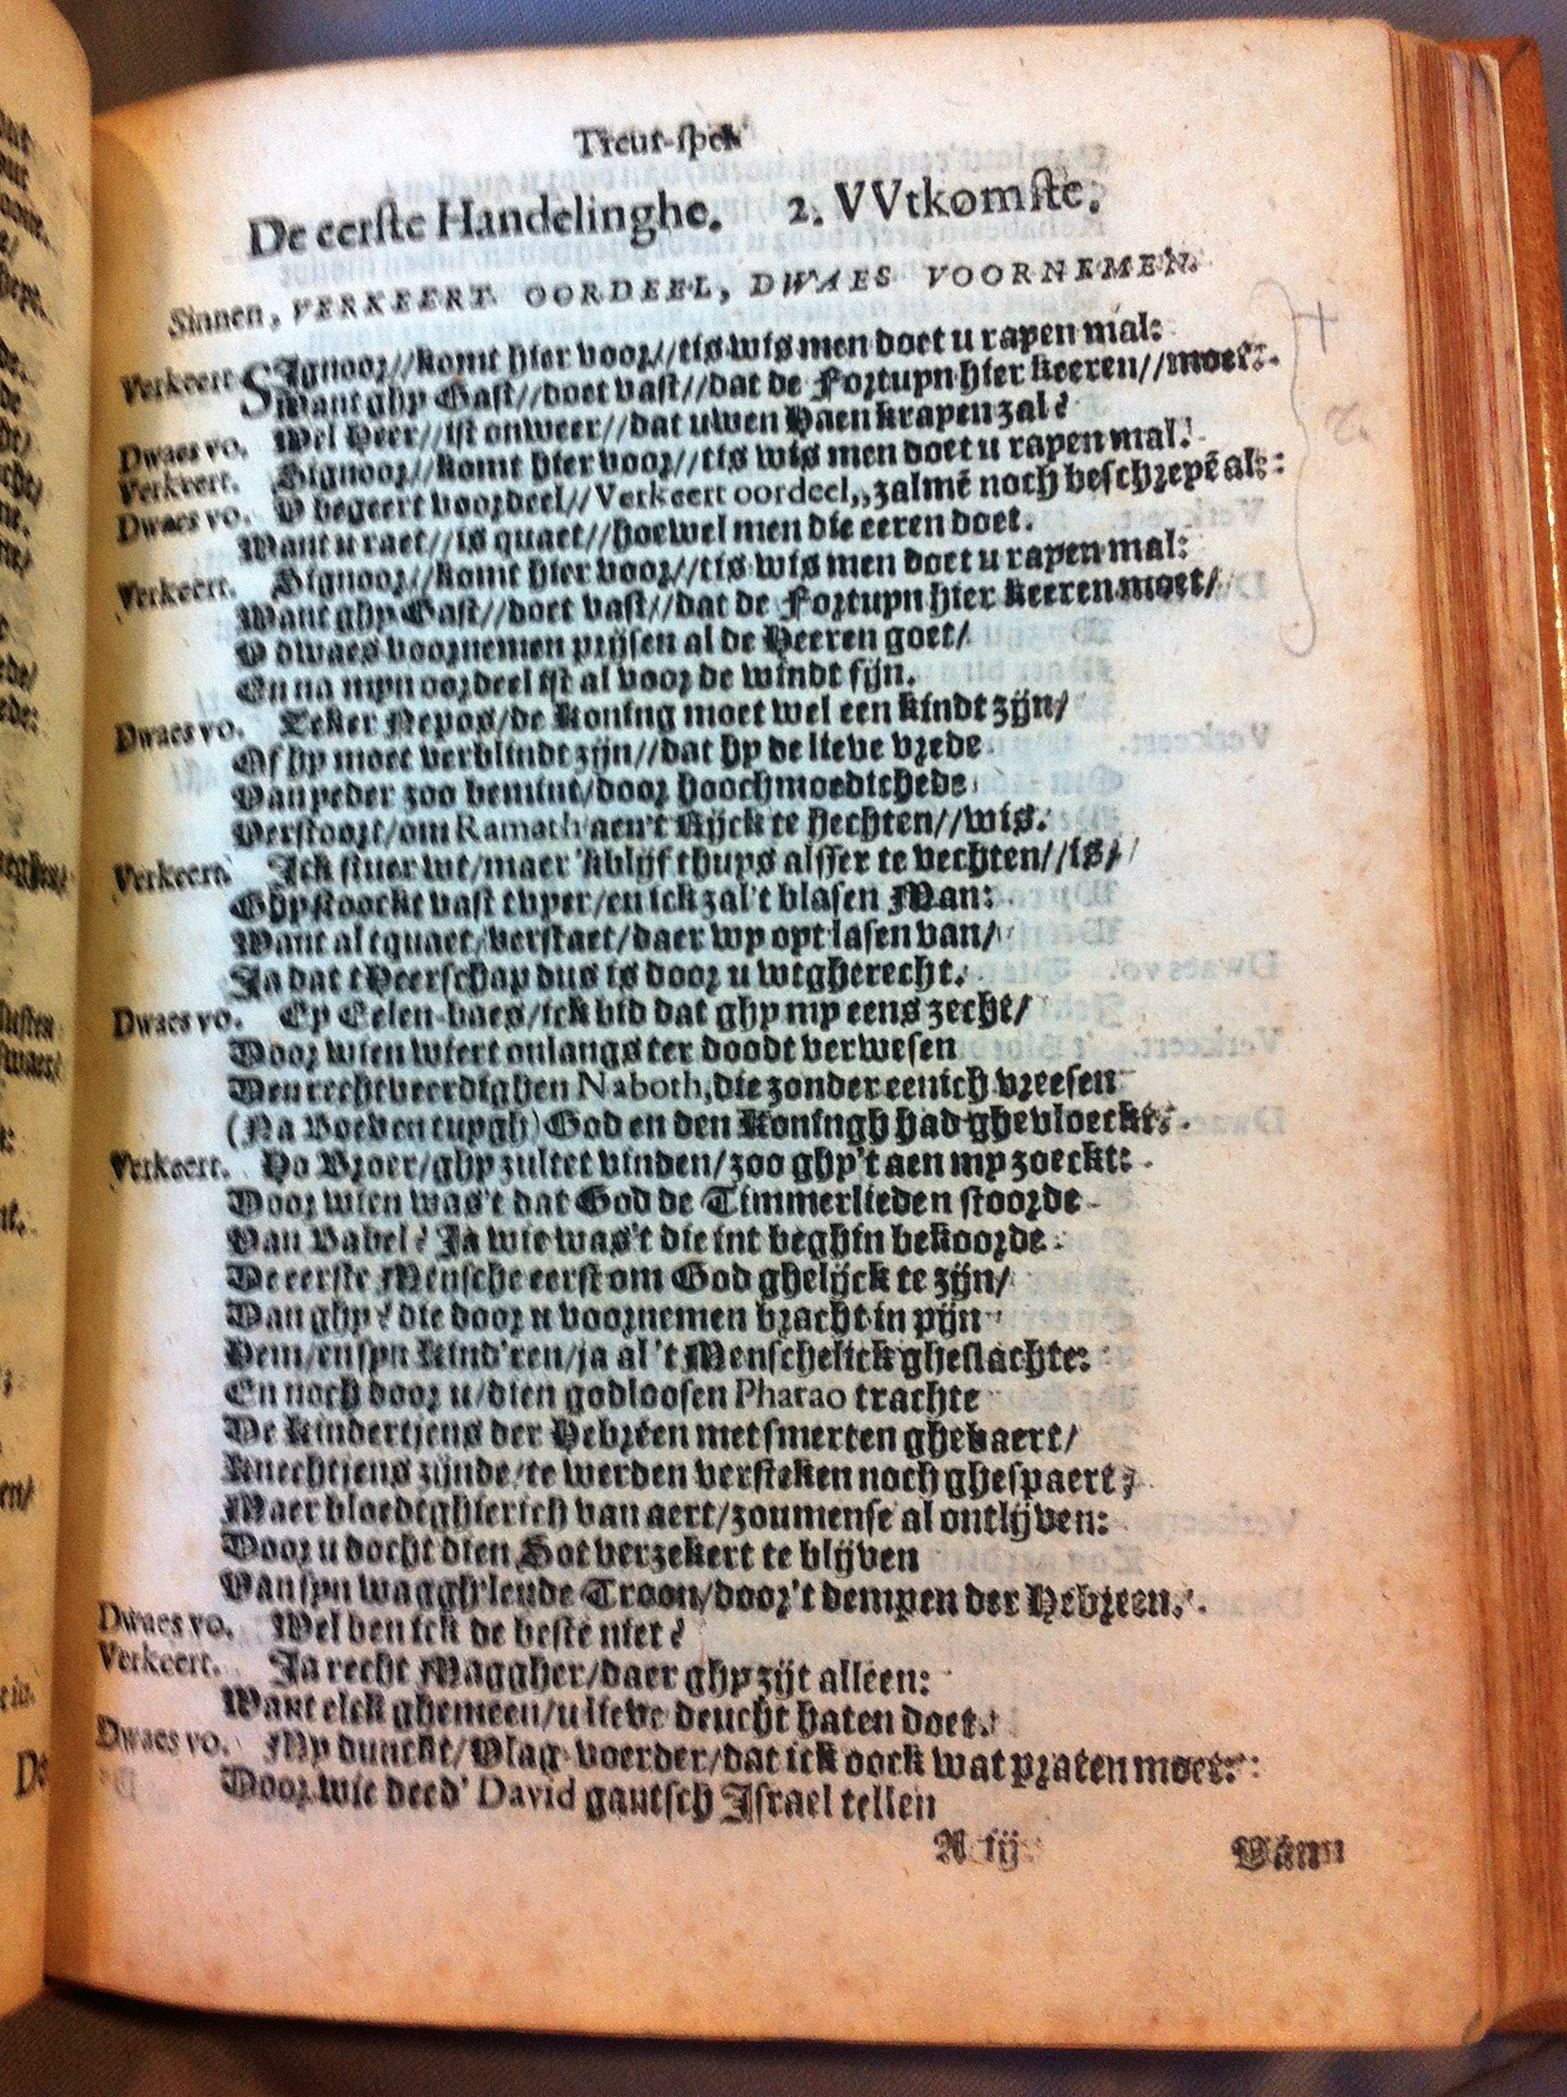 Treur-spel
De eerste Handelinghe. 2. VVtkomste.
Sinnen, VERKEERT OORDEEL, DWAES VOORNEMEN.
Verkeert. SIgnoor//komt hier voor//tis wis men doet u rapen mal:
Want ghy Gast//doet vast//dat de Fortuyn hier keeren//moet.
Dwaes vo. Wel Heer//ist onweer//dat uwen Haen krapen zal?
Verkeert. Signoor//komt hier voor//tis wis men doet u rapen mal.
Dwaes vo. V begeert voordeel//Verkeert oordeel,,zalmē noch beschrepē al:
Want u raet//is quaet//hoewel men die eeren doet.
Verkeert. Signoor//komt hier voor//tis wis men doet u rapen mal:
Want ghy Gast//doet vast//dat de Fortuyn hier keeren moet/
V dwaes voornemen prijsen al de Heeren goet/
En na myn oordeel ist al voor de windt sijn.
Dwaes vo. Zeker Nepos/de Koning moet wel een kindt zijn/
Of hy moet verblindt zijn//dat hy de lieve vrede
Van yeder zoo bemint/door hoochmoedichede
Verstoort/om Ramath aen't Rijck te hechten//wis.
Verkeert. Ick stuer wt/maer 'kblijf thuys alsser te vechten//is/
Ghy stoockt vast tvyer/en ick zal't blasen Man:
Want al tquaet/verstaet/daer wy opt lasen van/
Ja dat t'Heerschap dus is door u wtgherecht.
Dwaes vo. Ey Eelen baes/ick bid dat ghy my eens zecht/
Door wien wiert onlangs ter doodt verwesen
Den rechtveerdighen Naboth,die zonder eenich vreesen
(Na Boeven tuygh) God en den Koningh had ghevloeckt.
Verkeert. Ho Broer/ghy zultet vinden/zoo ghy't aen my zoeckt:
Door wien was't dat God de Timmerlieden stoorde
Van Babel? Ja wie was't die int beghin bekoorde
De eerste Mensche eerst om God ghelijck te zijn/
Dan ghy? die door u voornemen bracht in pijn
Hem/en syn kind'ren/ja al 't Menschelick gheslachte:
En noch door u/dien godloosen Pharao trachte
De kindertjens der Hebreen met smerten ghebaert/
Knechtjens zijnde/te werden versteken noch ghespaert;
Maer bloedtghierich van aert/zoumense al ontlijven:
Door u docht dien Sot verzekert te blijven
Van syn waggh'lende Troon/door't dempen der Hebreen.
Dwaes vo. Wel ben ick de beste niet?
Verkeert. Ja recht Maggher/daer ghy zijt alleen:
Want elck ghemeen/u lieve deucht haten doet.
Dwaes vo. My dunckt/Vlag-voerder/dat ick oock wat praten moet:
Door wie deed' David gantsch Israel tellen
A iij
Dan